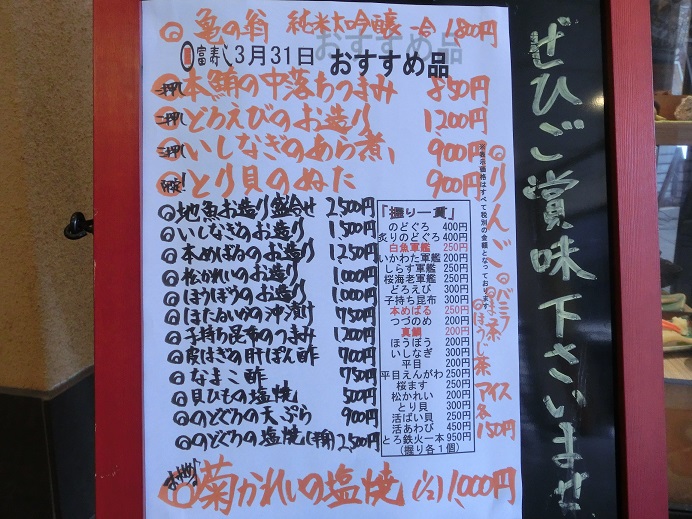 ◎亀の翁 純米大吟醸 一合 1,800円
富寿し3月31日 おすすめ品
一押し◎本鮪の中落ちつまみ 850円
二押し◎どろえびのお造り 1,200円
三押し◎いしなぎのあら煮、900円
◎とり貝のぬた 900円
◎地魚お造り盛合せ 2,500円
◎いしなぎのお造り 1,500円
◎本めばるのお造り 1,250円
◎松かれいのお造り 1,000円
◎ほうぼうのお造り 1,000円
◎ほたるいかの沖漬け 750円
◎子持ち昆布のつまみ 1,200円
◎皮はぎの肝ぽん酢 700円
◎なまこ酢 750円
◎貝ひもの塩焼 500円
◎のどぐろの天ぷら 900円
◎のどぐろの塩焼(半身)2,500円
◎菊かれいの塩焼 (1/2) 1,000円
「握り一貫」
のどぐろ 400円
炙りのどぐろ 400円
白魚軍艦 250円
いかわた軍艦 200円
しらす軍艦 250円
桜海老軍艦 250円
どろえび 300円
子持ち昆布 300円
本めばる 250円
つづのめ 200円
真鯛 200円
ほうぼう 200円
いしなぎ 300円
平目 200円
平目えんがわ 250円
桜ます 250円
松かれい 200円
とり貝 300円
活ばい貝 250円
活あわび 450円
とろ鉄火一本 950円
(握り各1個)
※表示価格はすべて税別の金額となっております
◎りんご
◎バニラ
◎ほうじ茶
アイス
各
150円
ぜひご賞味下さいませ